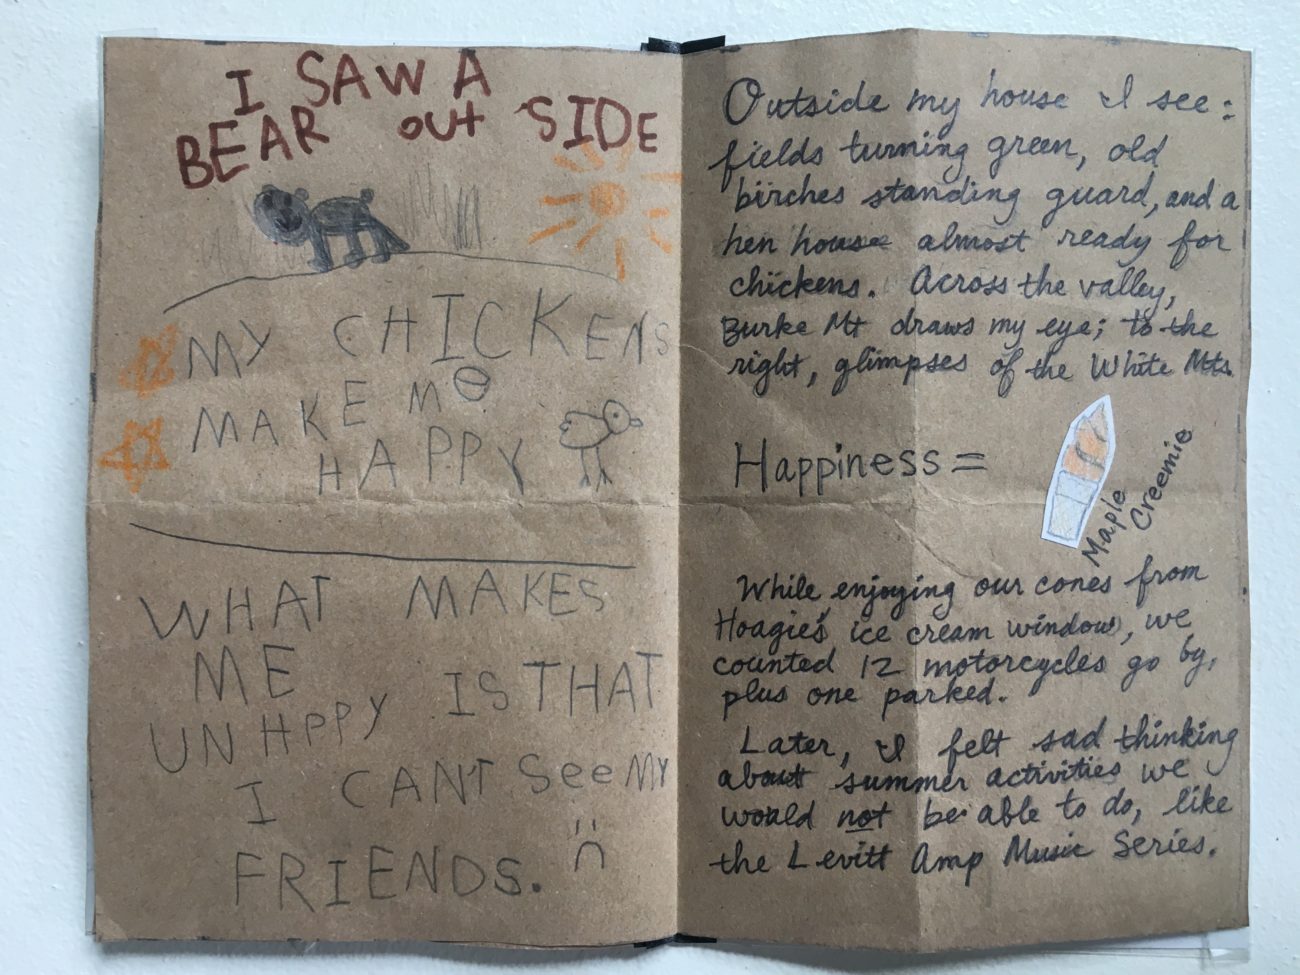 I SAW A
BEAR out SIDE
MY CHICKENS
MAKE ME
HAPPY
WHAT MAKES
ME
UNHPPY IS THAT
I CANT See MY
FRIENDS.
Outside my house I see:
fields turning green, old
birches standing guard, and a
hen house almost ready for
chickens. Across the valley,
Burke Mt draws my eye; to the
right, glimpses of the White Mts.
Happiness =
Maple
Creemie
While enjoying our cones from
Hoagie's ice cream window, we
counted 12 motorcycles go by,
plus one parked.
Later, I felt sad thinking
about summer activities we
would not be able to do, like
the Levitt Amp Music Series.